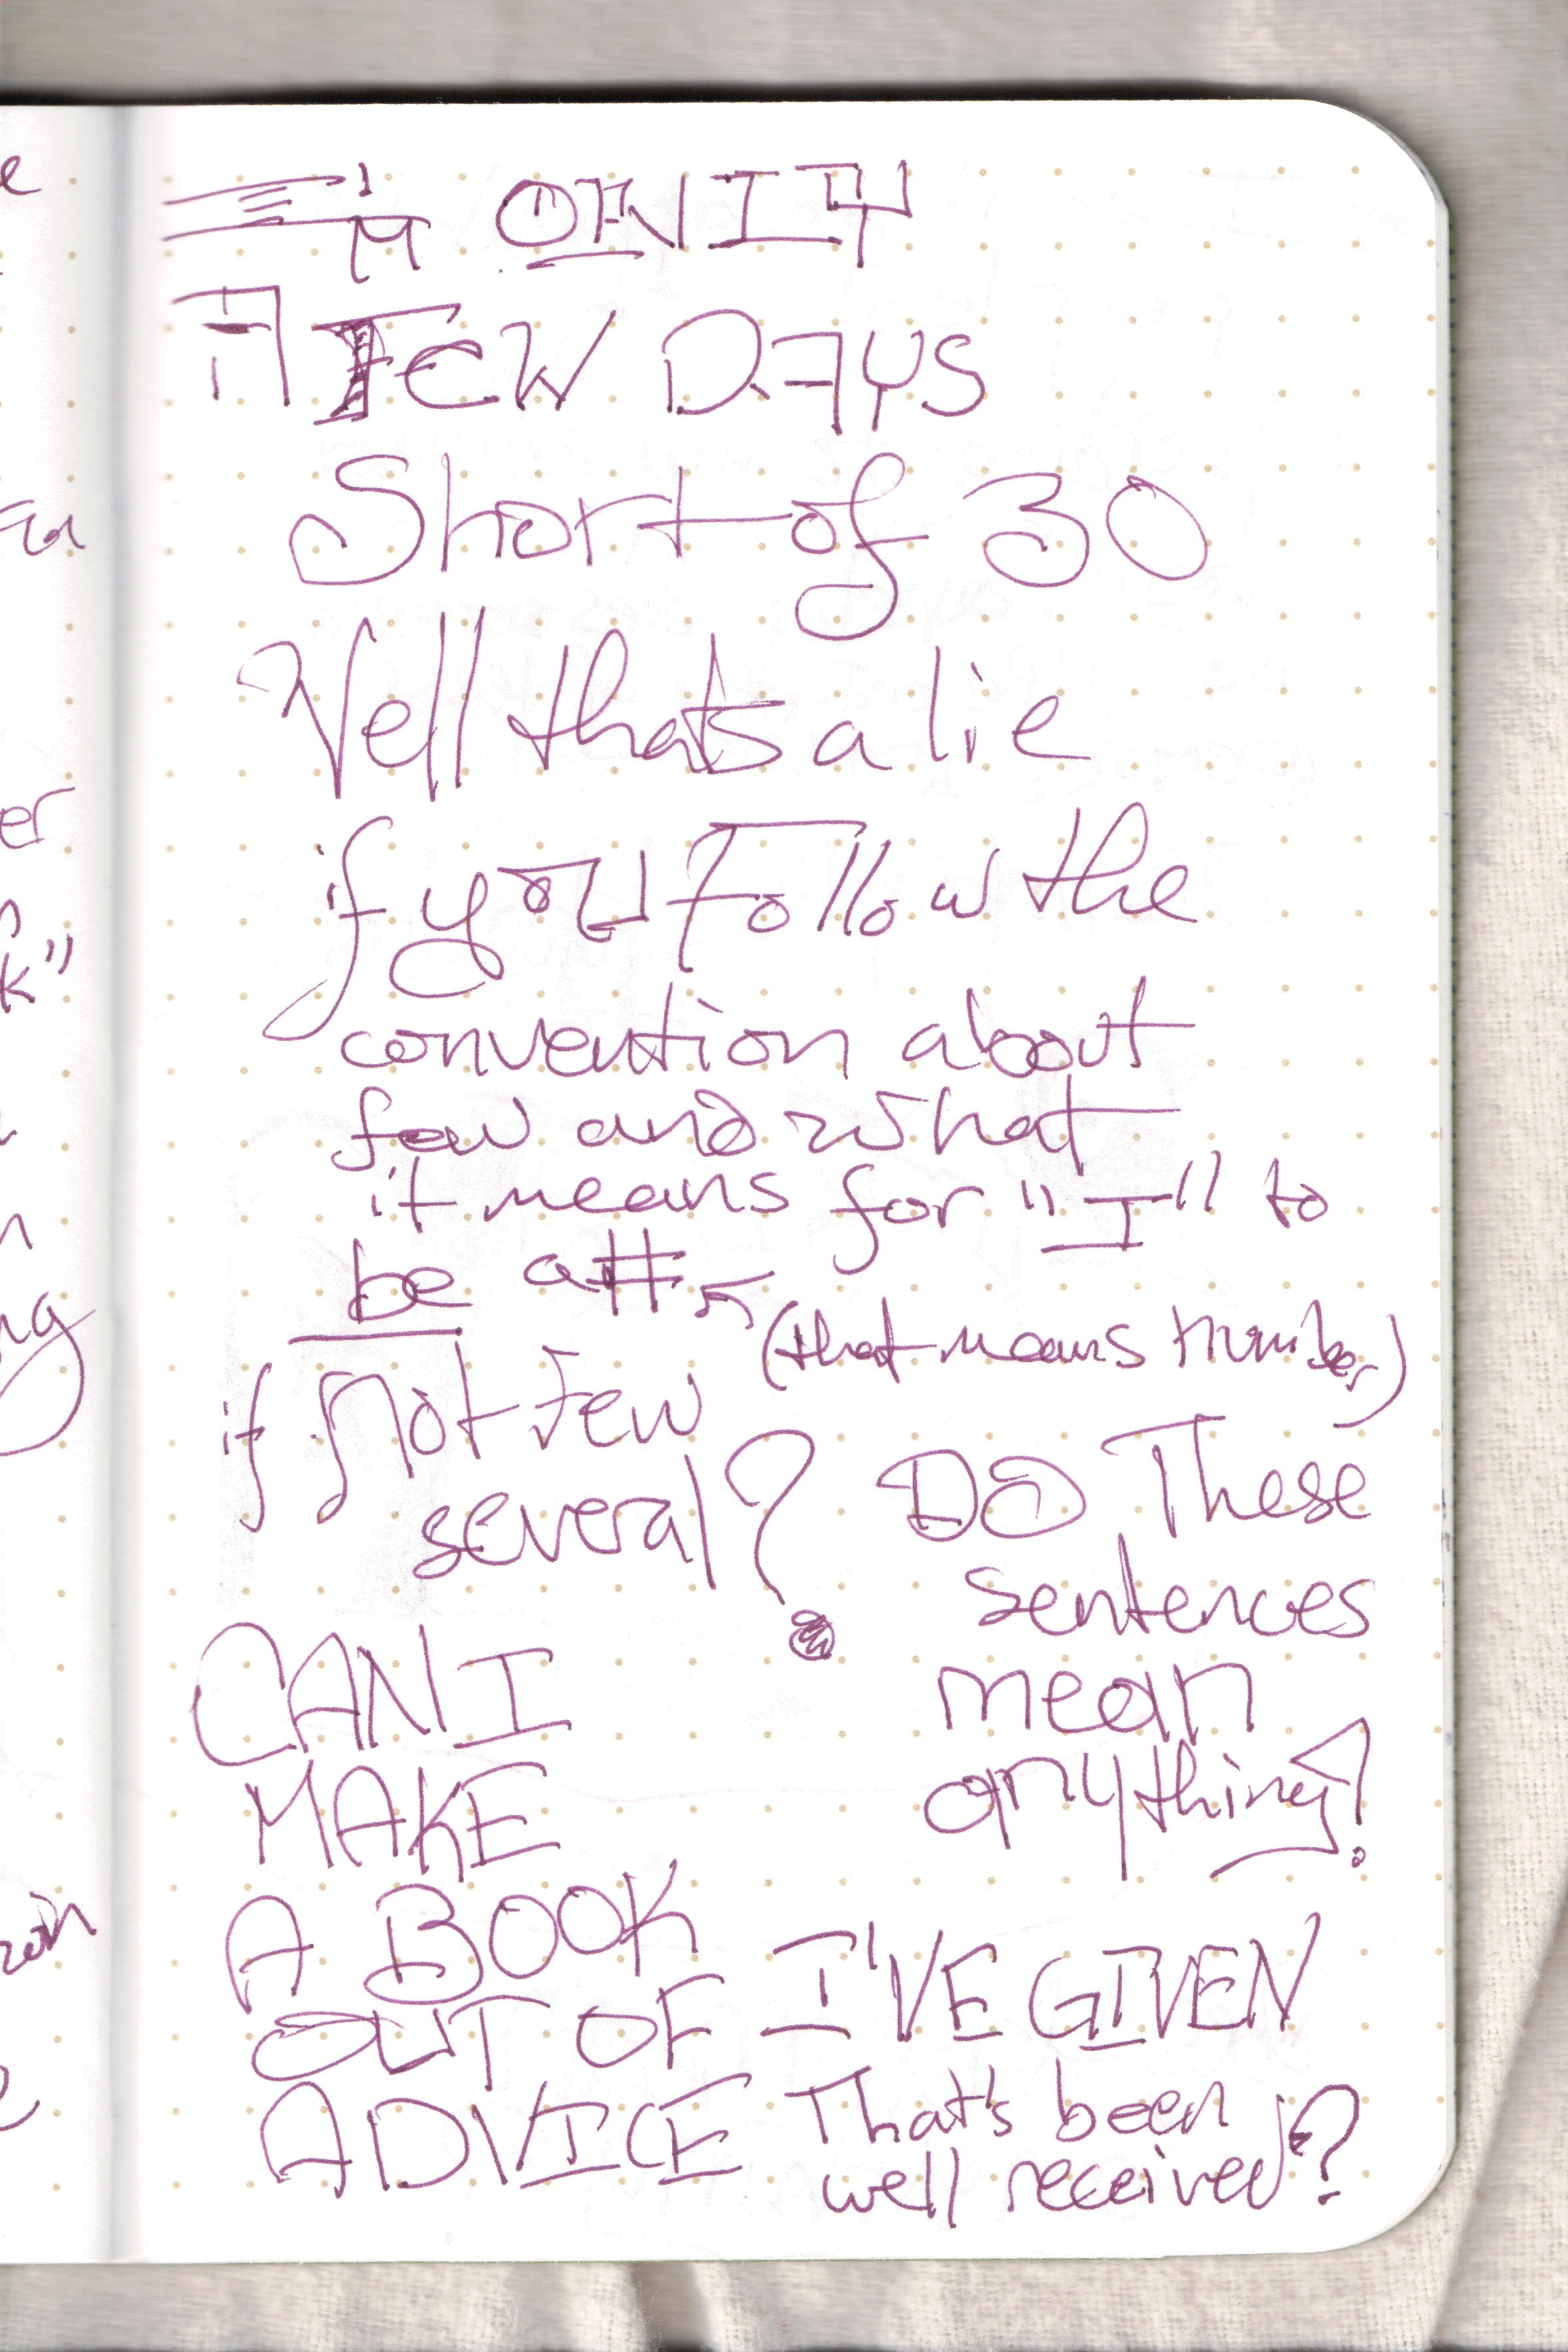 I'm ONLY
A FEW DAYS
Short of 30
Well thats a lie
if you Follow the
convention about
few and what
it means for "I" to
be a #
(that means number)
if not few
several?
DO These
sentences
mean
anything?
CAN I
MAKE
A BOOK
OUT OF
ADVICE
I'VE GIVEN
That's been
well received?
e
er
k"